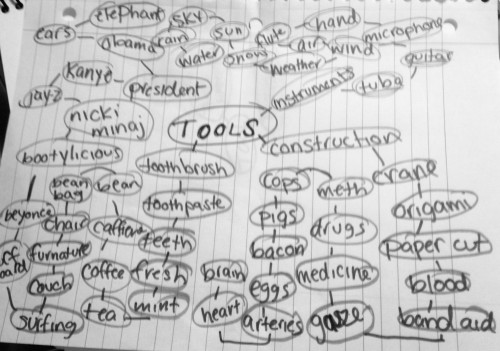 elephant
sky
ears
obama
rain
sun
flute
hand
microphone
water
snow
air
wind
guitar
weather
Kanye
president
instruments
tuba
jay-z
nicki
minaj
TOOLS
construction
bootylicious
toothbrush
bean
bag
bean
cops
meth
crane
beyonce
chair
caffiene
toothpaste
pigs
drugs
origami
furnature
teeth
bacon
paper cut
couch
coffee
fresh
brain
eggs
medicine
blood
surfing
tea
mint
heart
arteries
gauze
band aid